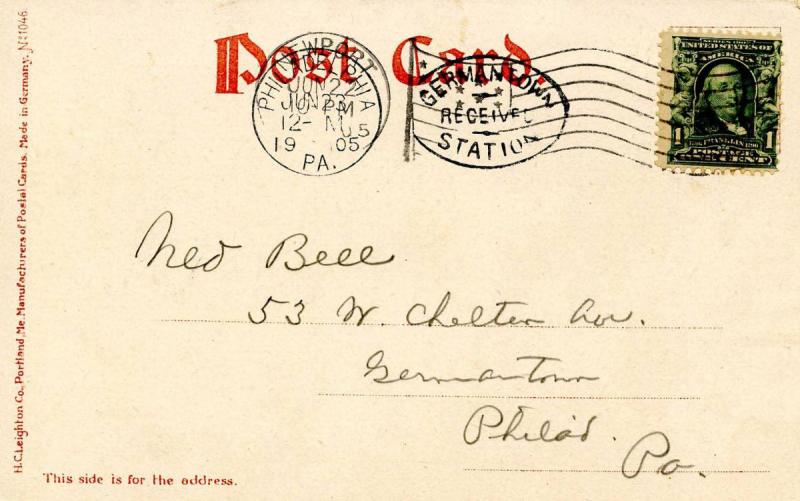 Post Card.
GERMANTOWN
RECEIVED
STATION
PHILADELPHIA
JUN 23
12- M
19 05
PA.
NEWPORT
JUN 22
PM
UNITED STATES OF AMERICA
FRANKLIN
1 ONE CENT 1
Ned Bell
53 W. Chelten Av.
Germantown
Philad.
Pa.
This side is for the address.
H.C.Leighton Co., Portland, Me. Manufacturers of Postal Cards. Made in Germany. No 1046